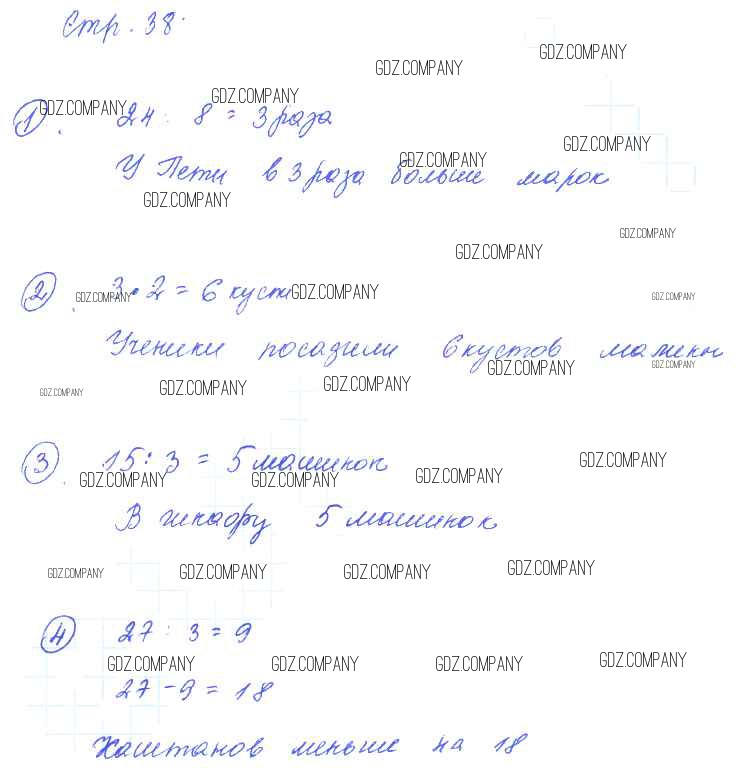 Стр. 38.
GDZ.COMPANY
GDZ.COMPANY
GDZ.COMPANY GDZ.COMPANY
1. 24 : 8 = 3 раза
GDZ.COMPANY
У Пети в 3 раза больше марок
GDZ.COMPANY
GDZ.COMPANY
GDZ.COMPANY
GDZ.COMPANY
2. 3 · 2 = 6 куст
GDZ.COMPANY GDZ.COMPANY GDZ.COMPANY
Ученики посадили 6 кустов малины
GDZ.COMPANY GDZ.COMPANY
GDZ.COMPANY GDZ.COMPANY GDZ.COMPANY
3. 15 : 3 = 5 машинок
GDZ.COMPANY GDZ.COMPANY GDZ.COMPANY GDZ.COMPANY
В шкафу 5 машинок
GDZ.COMPANY GDZ.COMPANY GDZ.COMPANY GDZ.COMPANY
4 27 : 3 = 9
GDZ.COMPANY GDZ.COMPANY GDZ.COMPANY GDZ.COMPANY
27 - 9 = 18
Каштанов меньше на 18